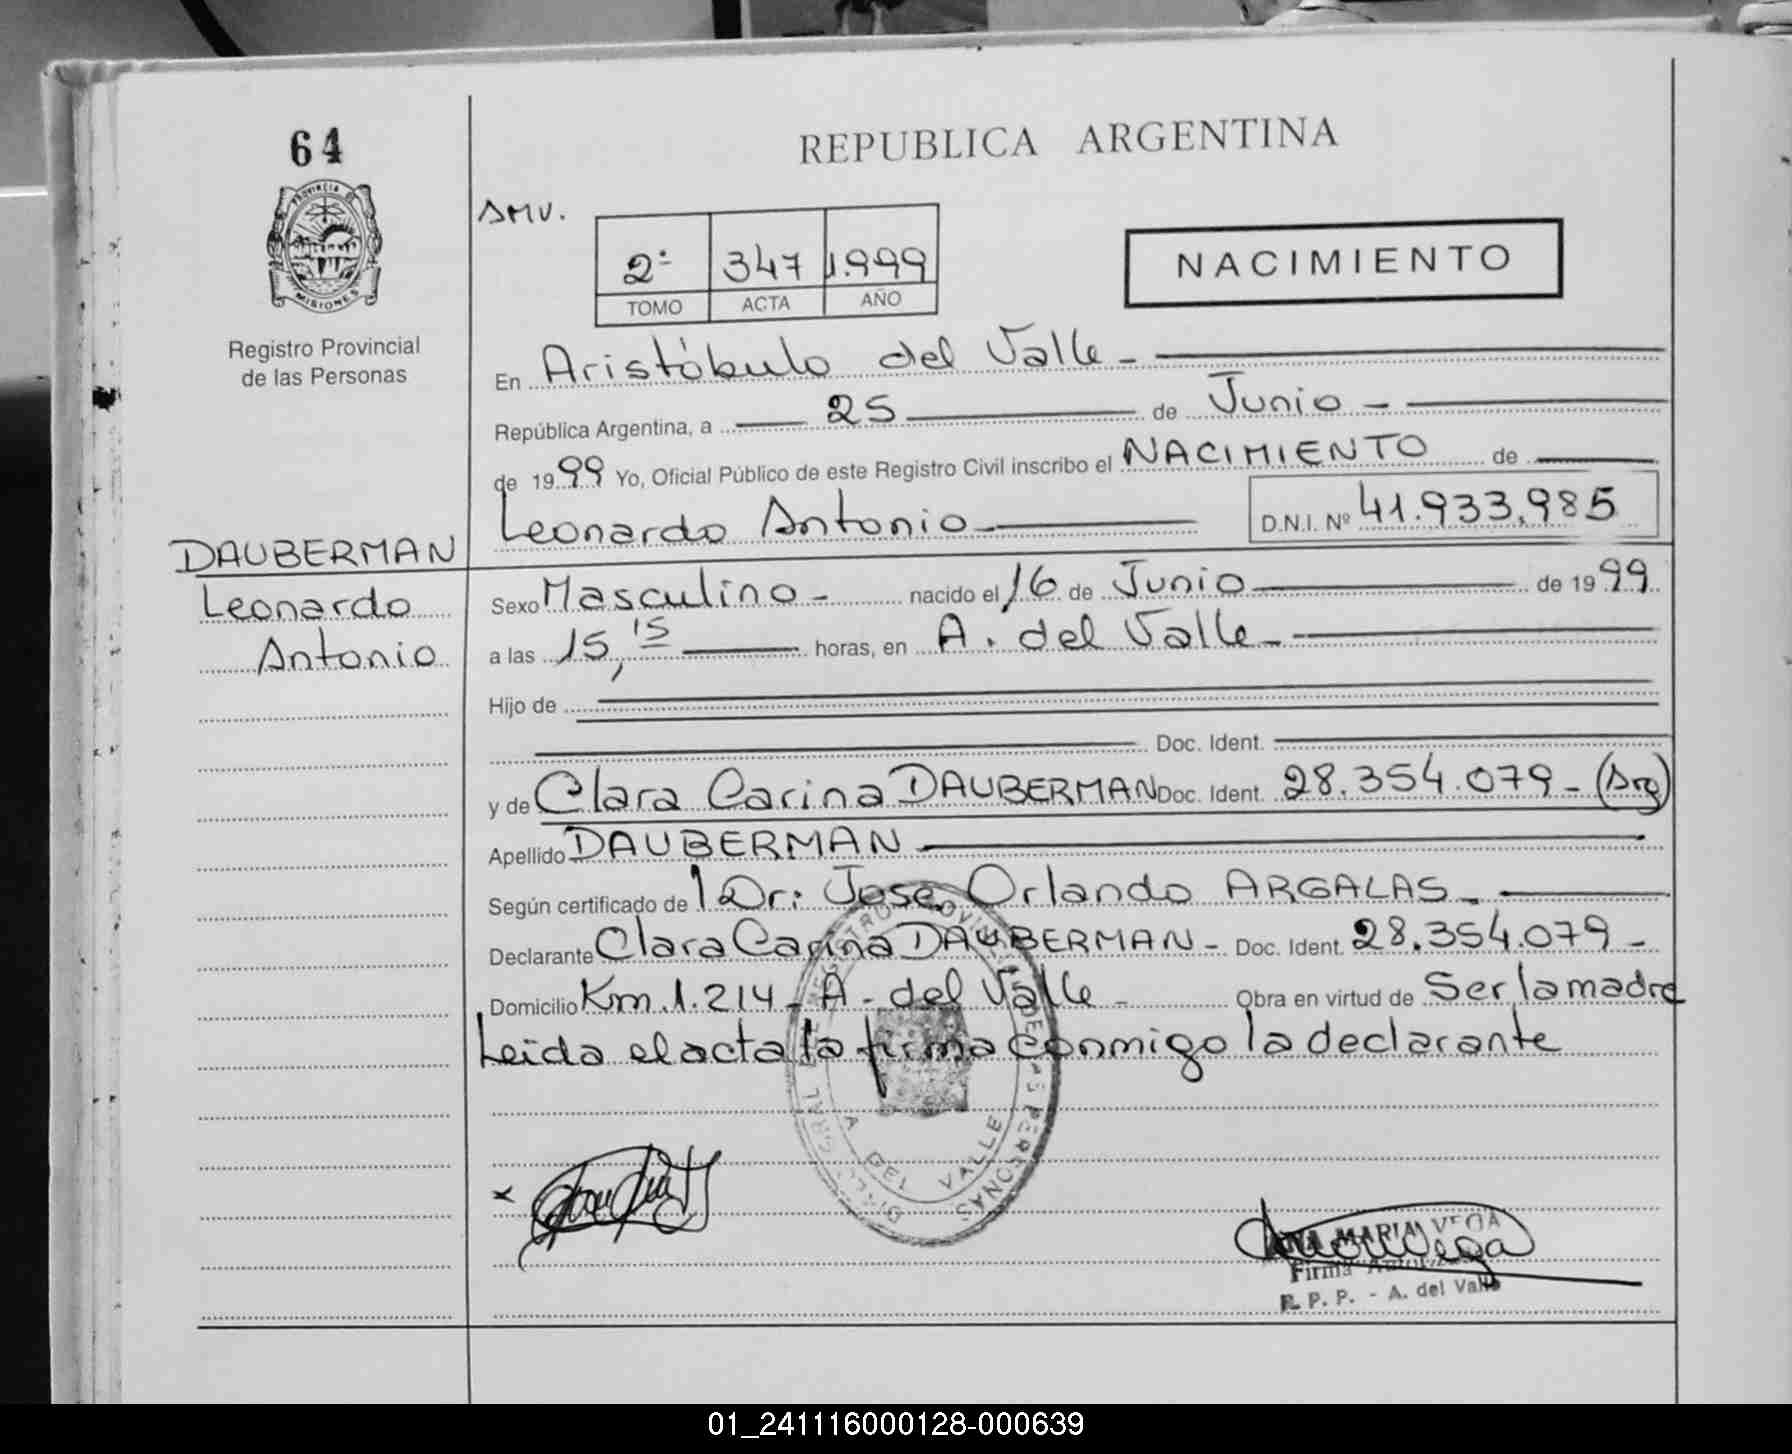 64
PROVINCIA DE
MISIONES
Registro Provincial
de las Personas
DAUBERMAN
Leonardo
Antonio
REPUBLICA ARGENTINA
SMV.
2º 347 1.999
TOMO ACTA AÑO
NACIMIENTO
En Aristóbulo del Valle -
República Argentina, a 25 de Junio -
de 1999 Yo, Oficial Público de este Registro Civil inscribo el NACIMIENTO de
Leonardo Antonio D.N.I. Nº 41.933.985
Sexo Masculino - nacido el 16 de Junio de 1999
a las 15,15 horas, en A. del Valle -
Hijo de
Doc. Ident.
y de Clara Carina DAUBERMAN Doc. Ident. 28.354.079 - (Arg)
Apellido DAUBERMAN
Según certificado de 1 Dr: Jose Orlando ARGALAS -
Declarante Clara Carina DAUBERMAN - Doc. Ident. 28.354.079 -
Domicilio Km. 1.214 - A. del Valle - Obra en virtud de Ser la madre
Leida el acta la firma conmigo la declarante
A DEL VALLE
x
ANA MARIA VEGA
Firma Autorizada
R. P. P. - A. del Valle
01_241116000128-000639